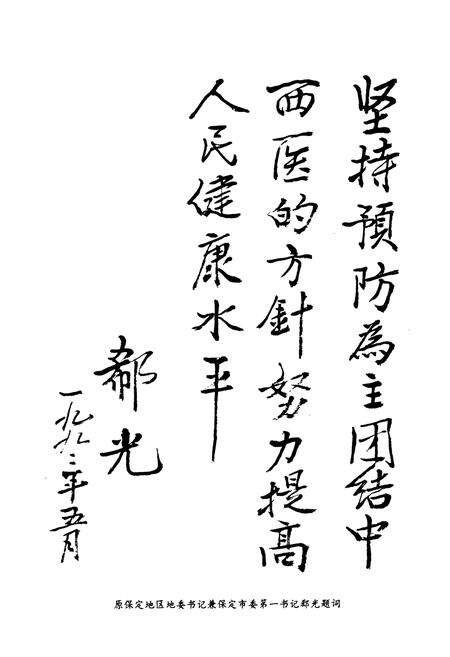 坚持预防為主团结中
西医的方針努力提高
人民健康水平
郗光
一九九二年五月
原保定地区地委书记兼保定市委第一书记郗光题词